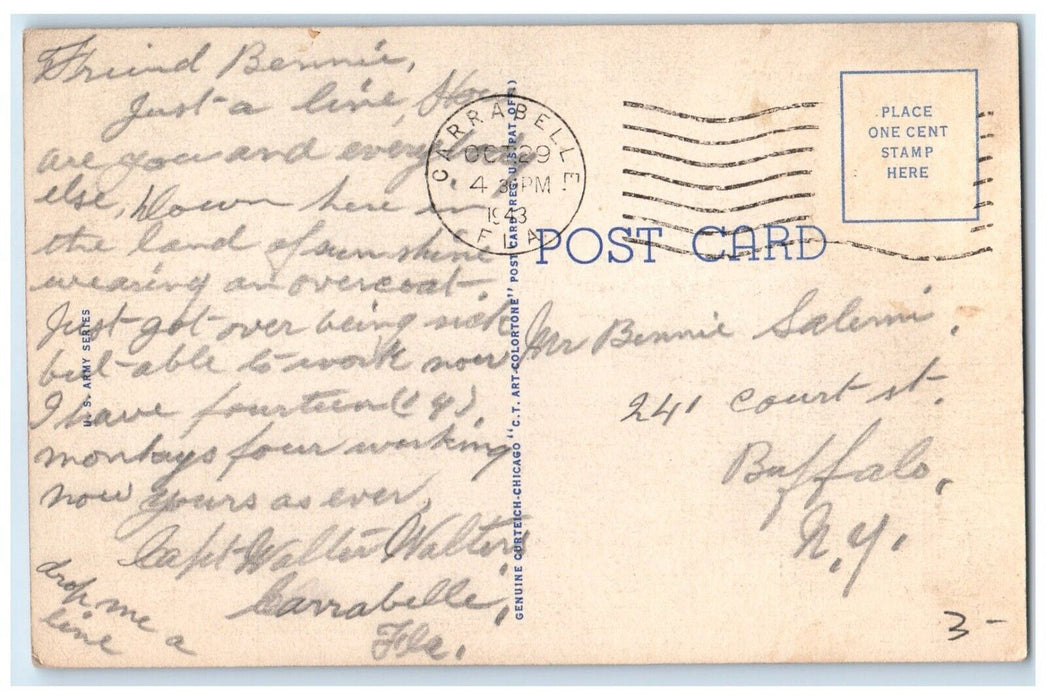 Friend Bennie,
Just a line, How
are you and everything
else, Down here in
the land of sunshine
wearing an overcoat.
Just got over being sick
but able to work now
I have fourteen (14)
four working
now yours as ever,
Capt Walter Walters
Carrabelle,
Fla.
drop me a
line
U. S. ARMY SERIES
GENUINE CURTEICH-CHICAGO "C.T. ART-COLORTONE" POST CARD (REG. U.S. PAT. OFF.)
CARRABELLE
OCT 29
4 30 PM
1943
FLA
PLACE
ONE CENT
STAMP
HERE
POST CARD
Mr Bennie Salemi.
241 court st.
Buffalo,
N.Y.
3-